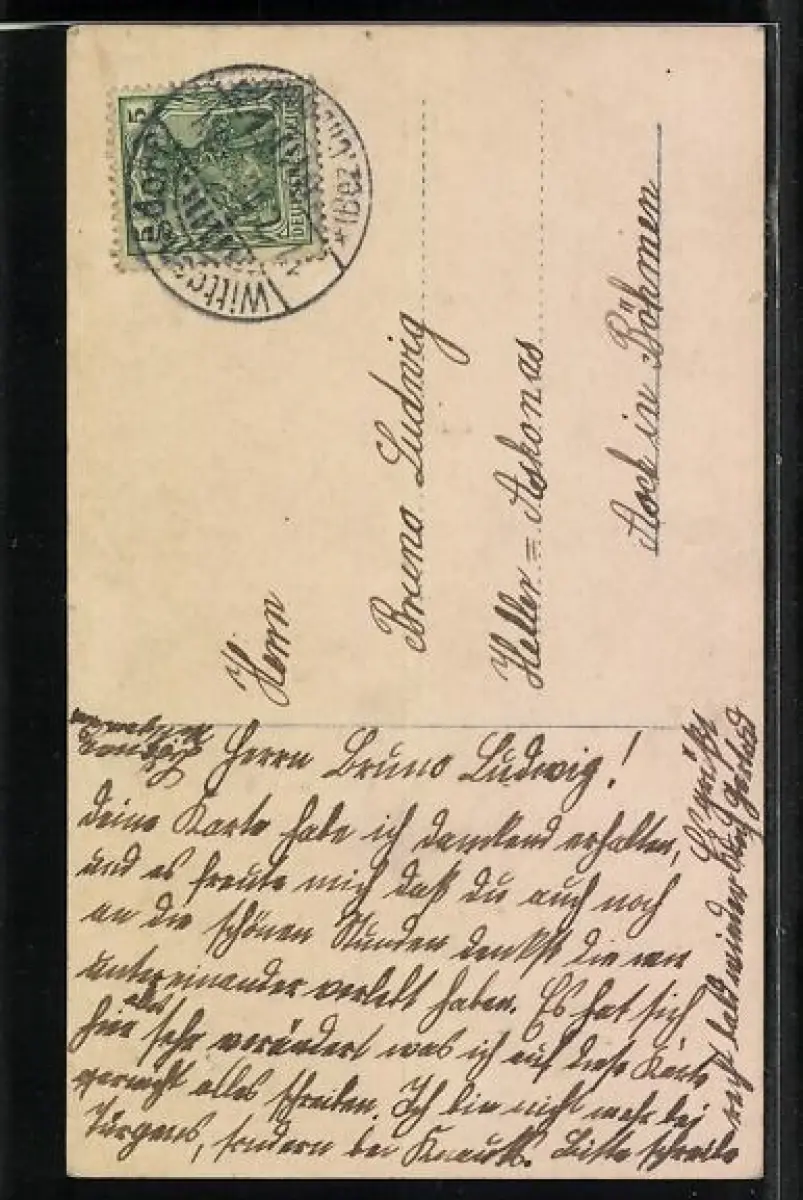 5 5
DEUTSCHES REICH
Wittg
(Bez.
Herrn
Bruno Ludwig
Heller = Askonas
Asch in Böhmen
Herrn Bruno Ludwig!
Deine Karte habe ich dankend erhalten,
und es freute mich daß du auch noch
an die schönen Stunden denkst die wir
untereinander verlebt haben. Es hat sich
hier alles sehr verändert was ich auf diese Karte
gar nicht alles schreiben. Ich bin nicht mehr bei
Türgens, sondern bei Knauth. Bitte schreibe
recht bald wieder. Es grüßt